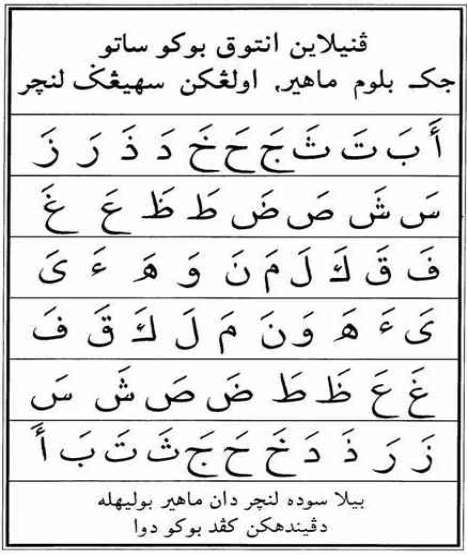 ڤنيلاين انتوق بوكو ساتو
جک بلوم ماهير, اولڠكن سهيڠݢ لنچر
أَ بَ تَ ثَ جَ حَ خَ دَ ذَ رَ زَ
سَ شَ صَ ضَ طَ ظَ عَ غَ
فَ قَ كَ لَ مَ نَ وَ هَ ءَ ىَ
ىَ ءَ هَ وَ نَ مَ لَ كَ قَ فَ
غَ عَ ظَ طَ ضَ صَ شَ سَ
زَ رَ ذَ دَ خَ حَ جَ ثَ تَ بَ أَ
بيلا سوده لنچر دان ماهير بوليهله
دڤيندهكن كڤد بوكو دوا